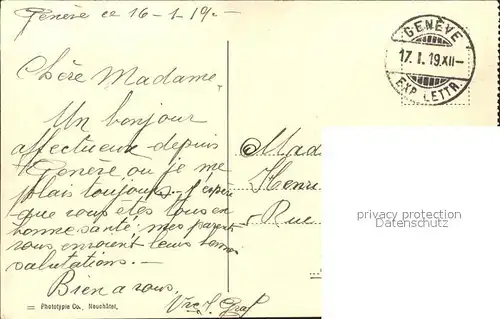 Genève ce 16-1-19.-
GENÈVE
17.I.19.XII-
EXP. LETTR.
Chère Madame,
Un bonjour
affectueux depuis
Genève ou je me
plais toujours. - J'espère
que vous êtes tous en
bonne santé; mes parents
vous envoient leurs bonnes
salutations. -
Bien a vous,
Graf
Mad
Henri
Rue
privacy protection
Datenschutz
Phototypie Co., Neuchâtel.